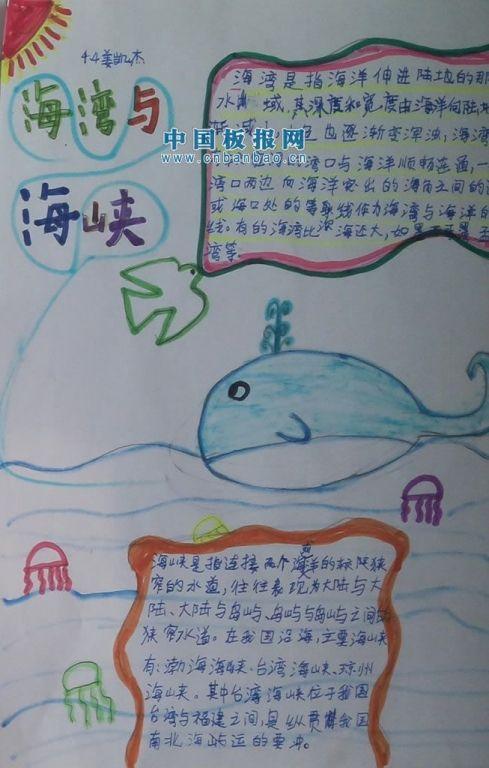 4.4姜凯杰
海湾与
海峡
中国板报网
www.cnbanbao.cn
海湾是指海洋伸进陆地的那
水 域,其深度和宽度由海洋向陆地
渐减 色也逐渐变浑浊,海湾
湾口与海洋顺畅连通,一
湾口两边向海洋突出的海角之间的
或海口处的等深线作为海湾与海洋的
线。有的海湾比 海还大,如
湾等.
海峡是指连接两个海洋的 狭
窄的水道,往往表现为大陆与大
陆、大陆与岛屿、岛屿与岛屿之间的
狭窄水道。在我国沿海,主要海峡
有:渤海海峡、台湾海峡、琼州
海峡。其中台湾海峡位于我国
台湾与福建之间,是纵贯 我国
南北海 运的要冲。